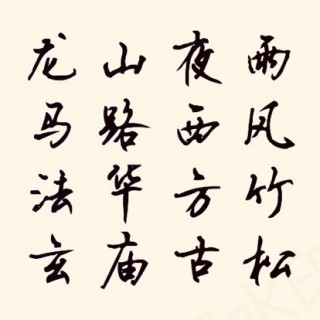 龙山夜雨
马路西风
法华方竹
玄庙古松